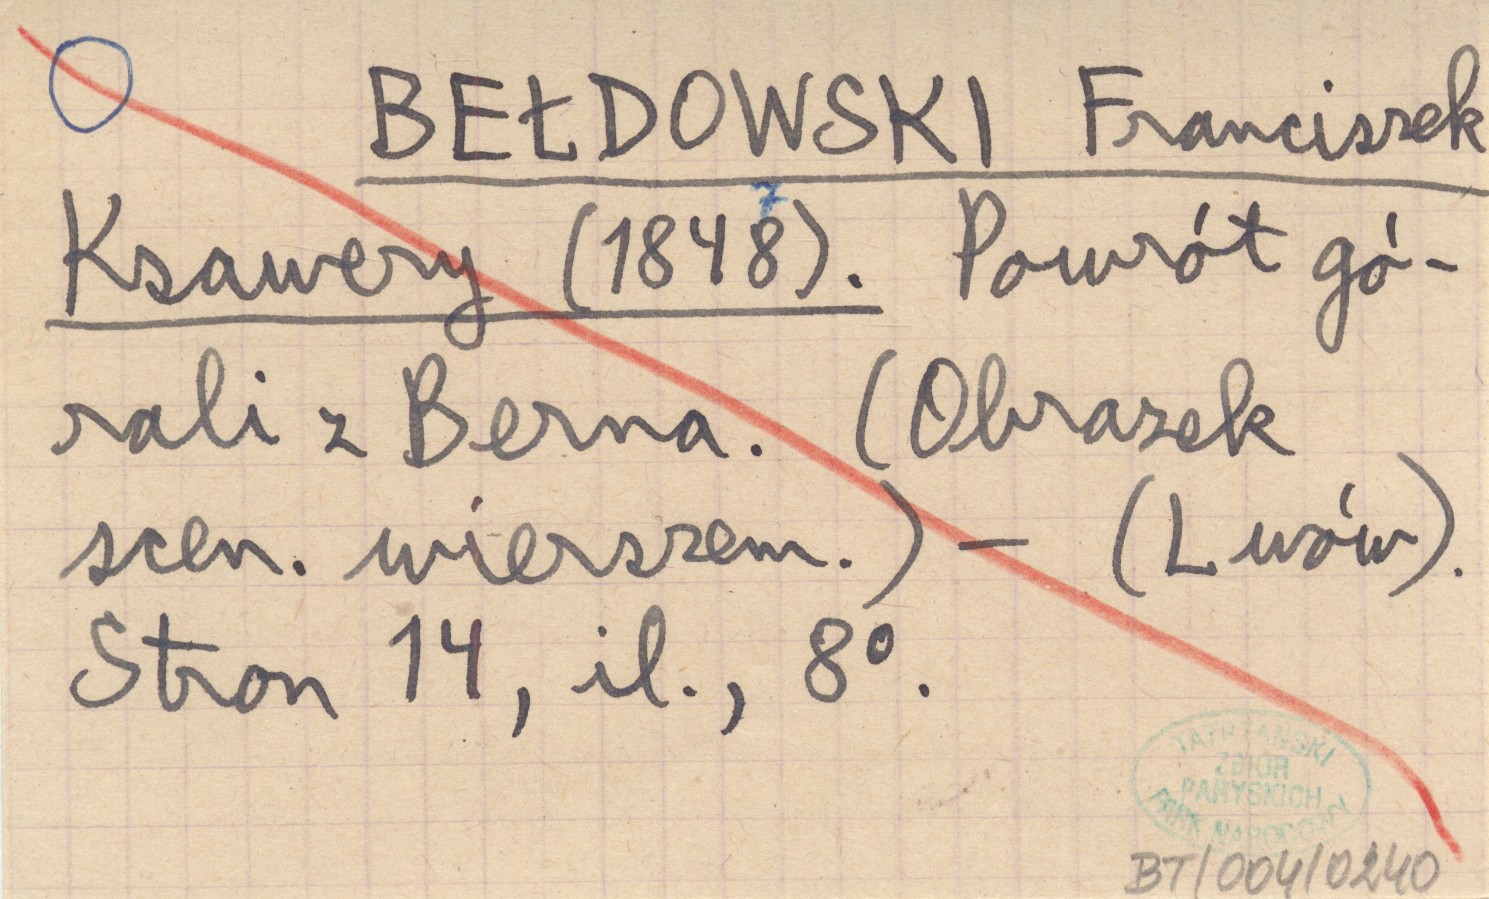 BEŁDOWSKI Franciszek
7
Ksawery (1848). Powrót gó-
rali z Berna. (Obrazek
scen. wierszem.) – (Lwów).
Stron 14, il., 8°.
TATRZAŃSKI
ZBIÓR
PARYSKICH
PARK NARODOWY
BT/004/0240